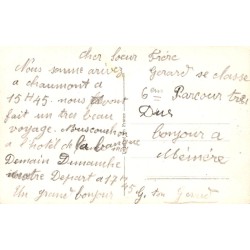 cher Soeur Frère
Nous somme arrivez
a chaumont a
15H45. nous avont
fait un tres beau
voyage. Nous couchon
a l'hotel de la
Demain Dimanche
notre Depart a 17H45
Un grand bonjour
Gerard se classe
6em Parcour tres
Dur
bonjour a
Mémére
G. ton